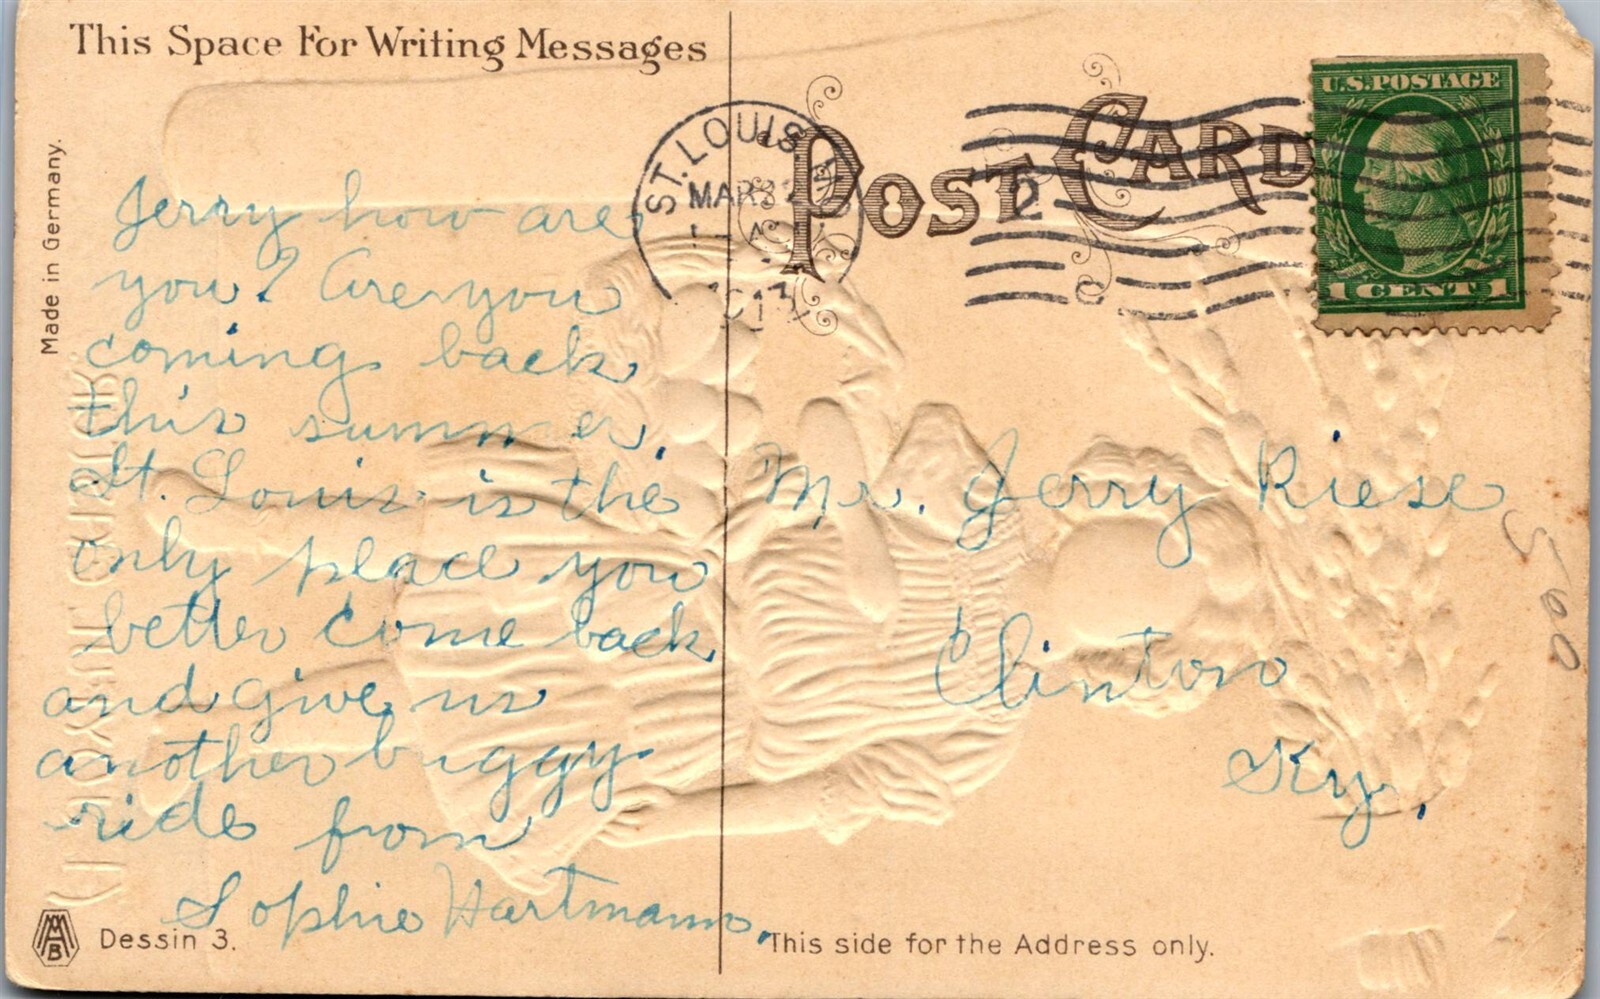 This Space For Writing Messages
Made in Germany.
Jerry how are
you? Are you
coming back
this summer.
St. Louis is the
only place you
better come back
and give us
another buggy
ride from
Sophie Hartmann.
MMB
Dessin 3.
POST CARD
ST. LOUIS
MAR 3
U.S. POSTAGE
1 CENT 1
Mr. Jerry Riese
Clinton
Ky.
500
This side for the Address only.